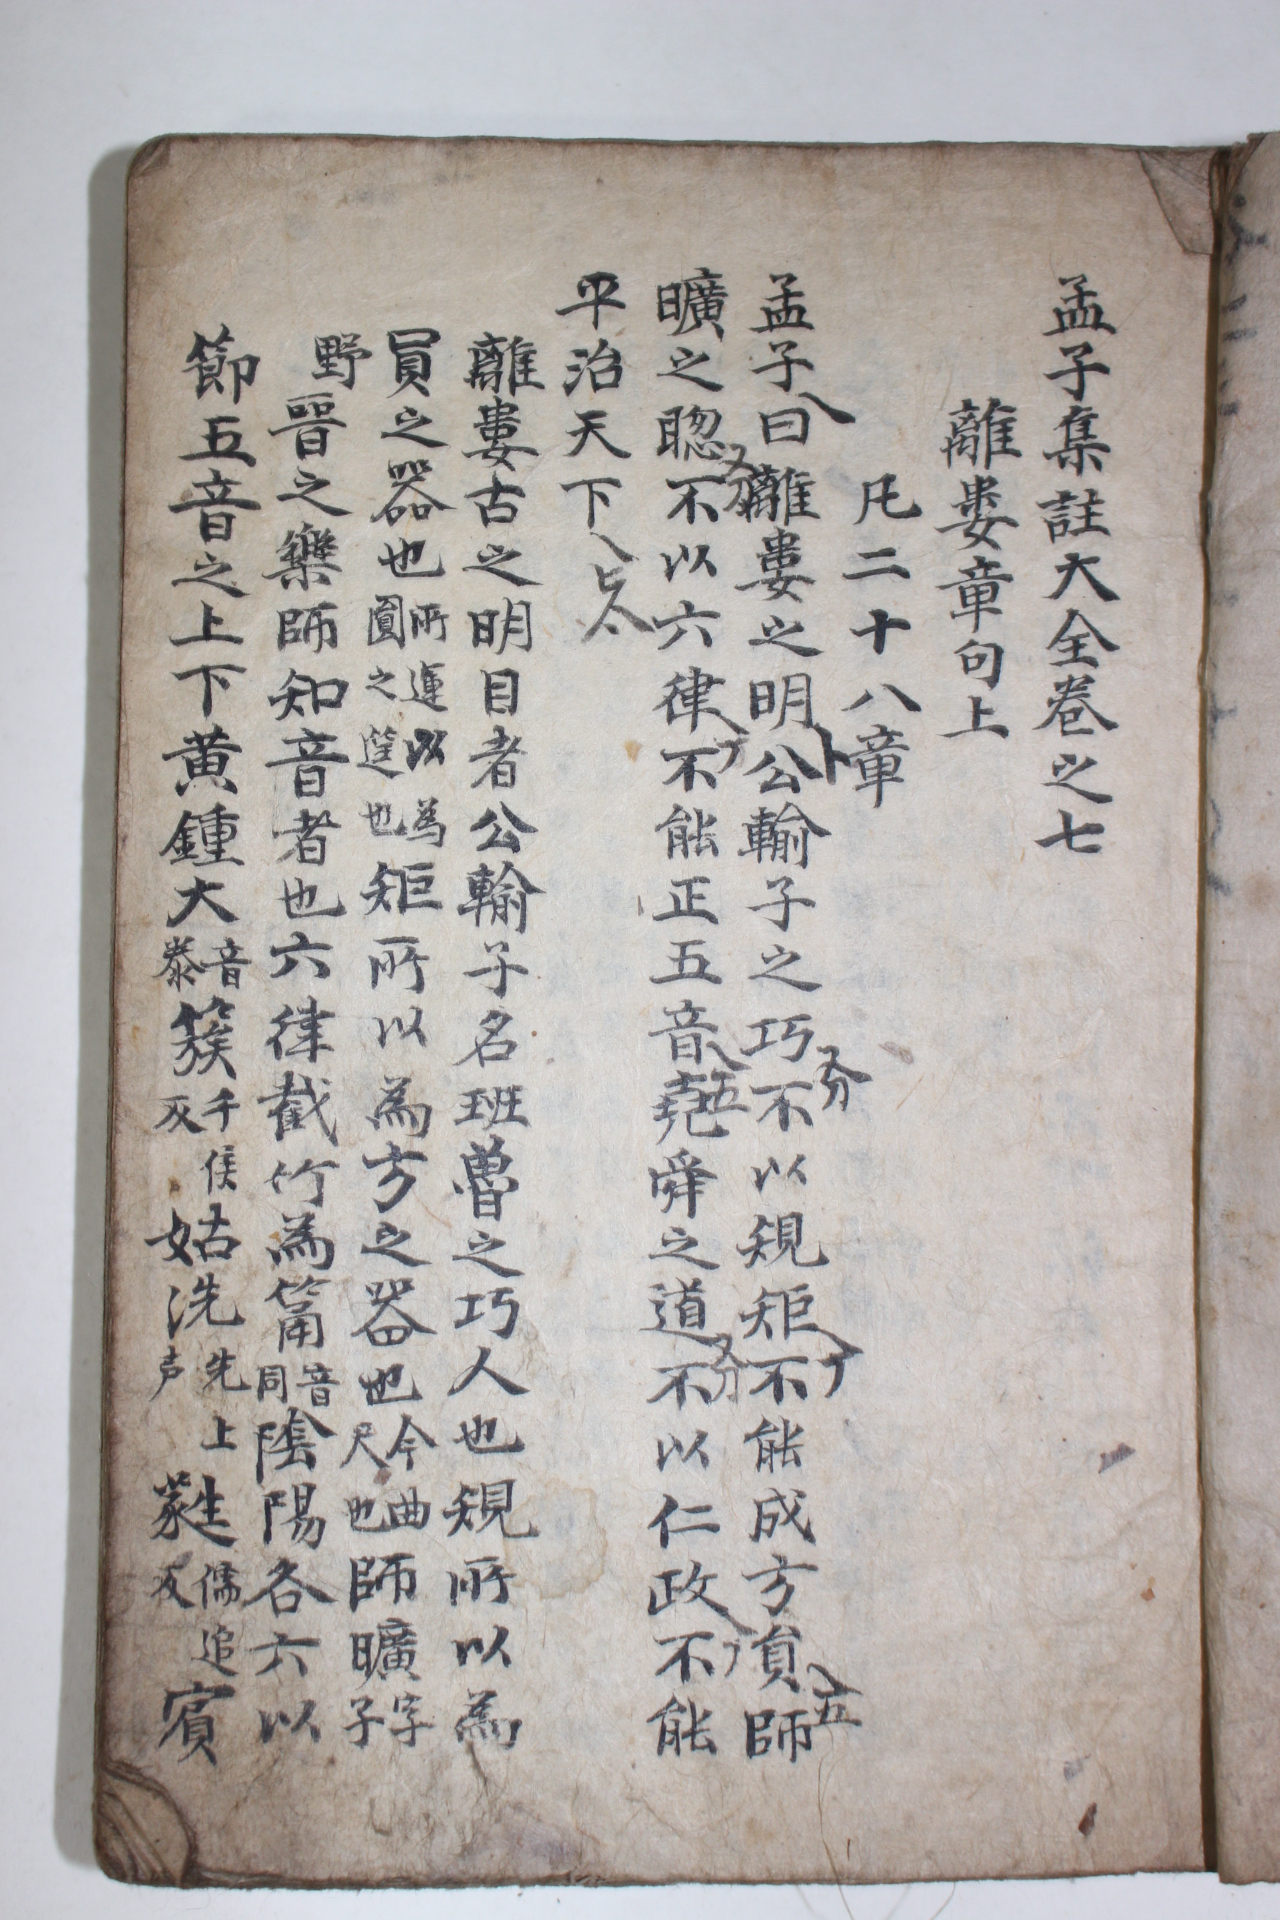 孟子集註大全卷之七
離婁章句上
凡二十八章
孟子曰離婁之明公輸子之巧不以規矩不能成方員師
曠之聰不以六律不能正五音堯舜之道不以仁政不能
平治天下
離婁古之明目者公輸子名班魯之巧人也規所以為
員之器也所運以為圓之筳也矩所以為方之器也今曲尺也師曠字子
野晉之樂師知音者也六律截竹為筩音同陰陽各六以
節五音之上下黃鍾大音泰簇千侯反姑洗先上声蕤儒追反賓